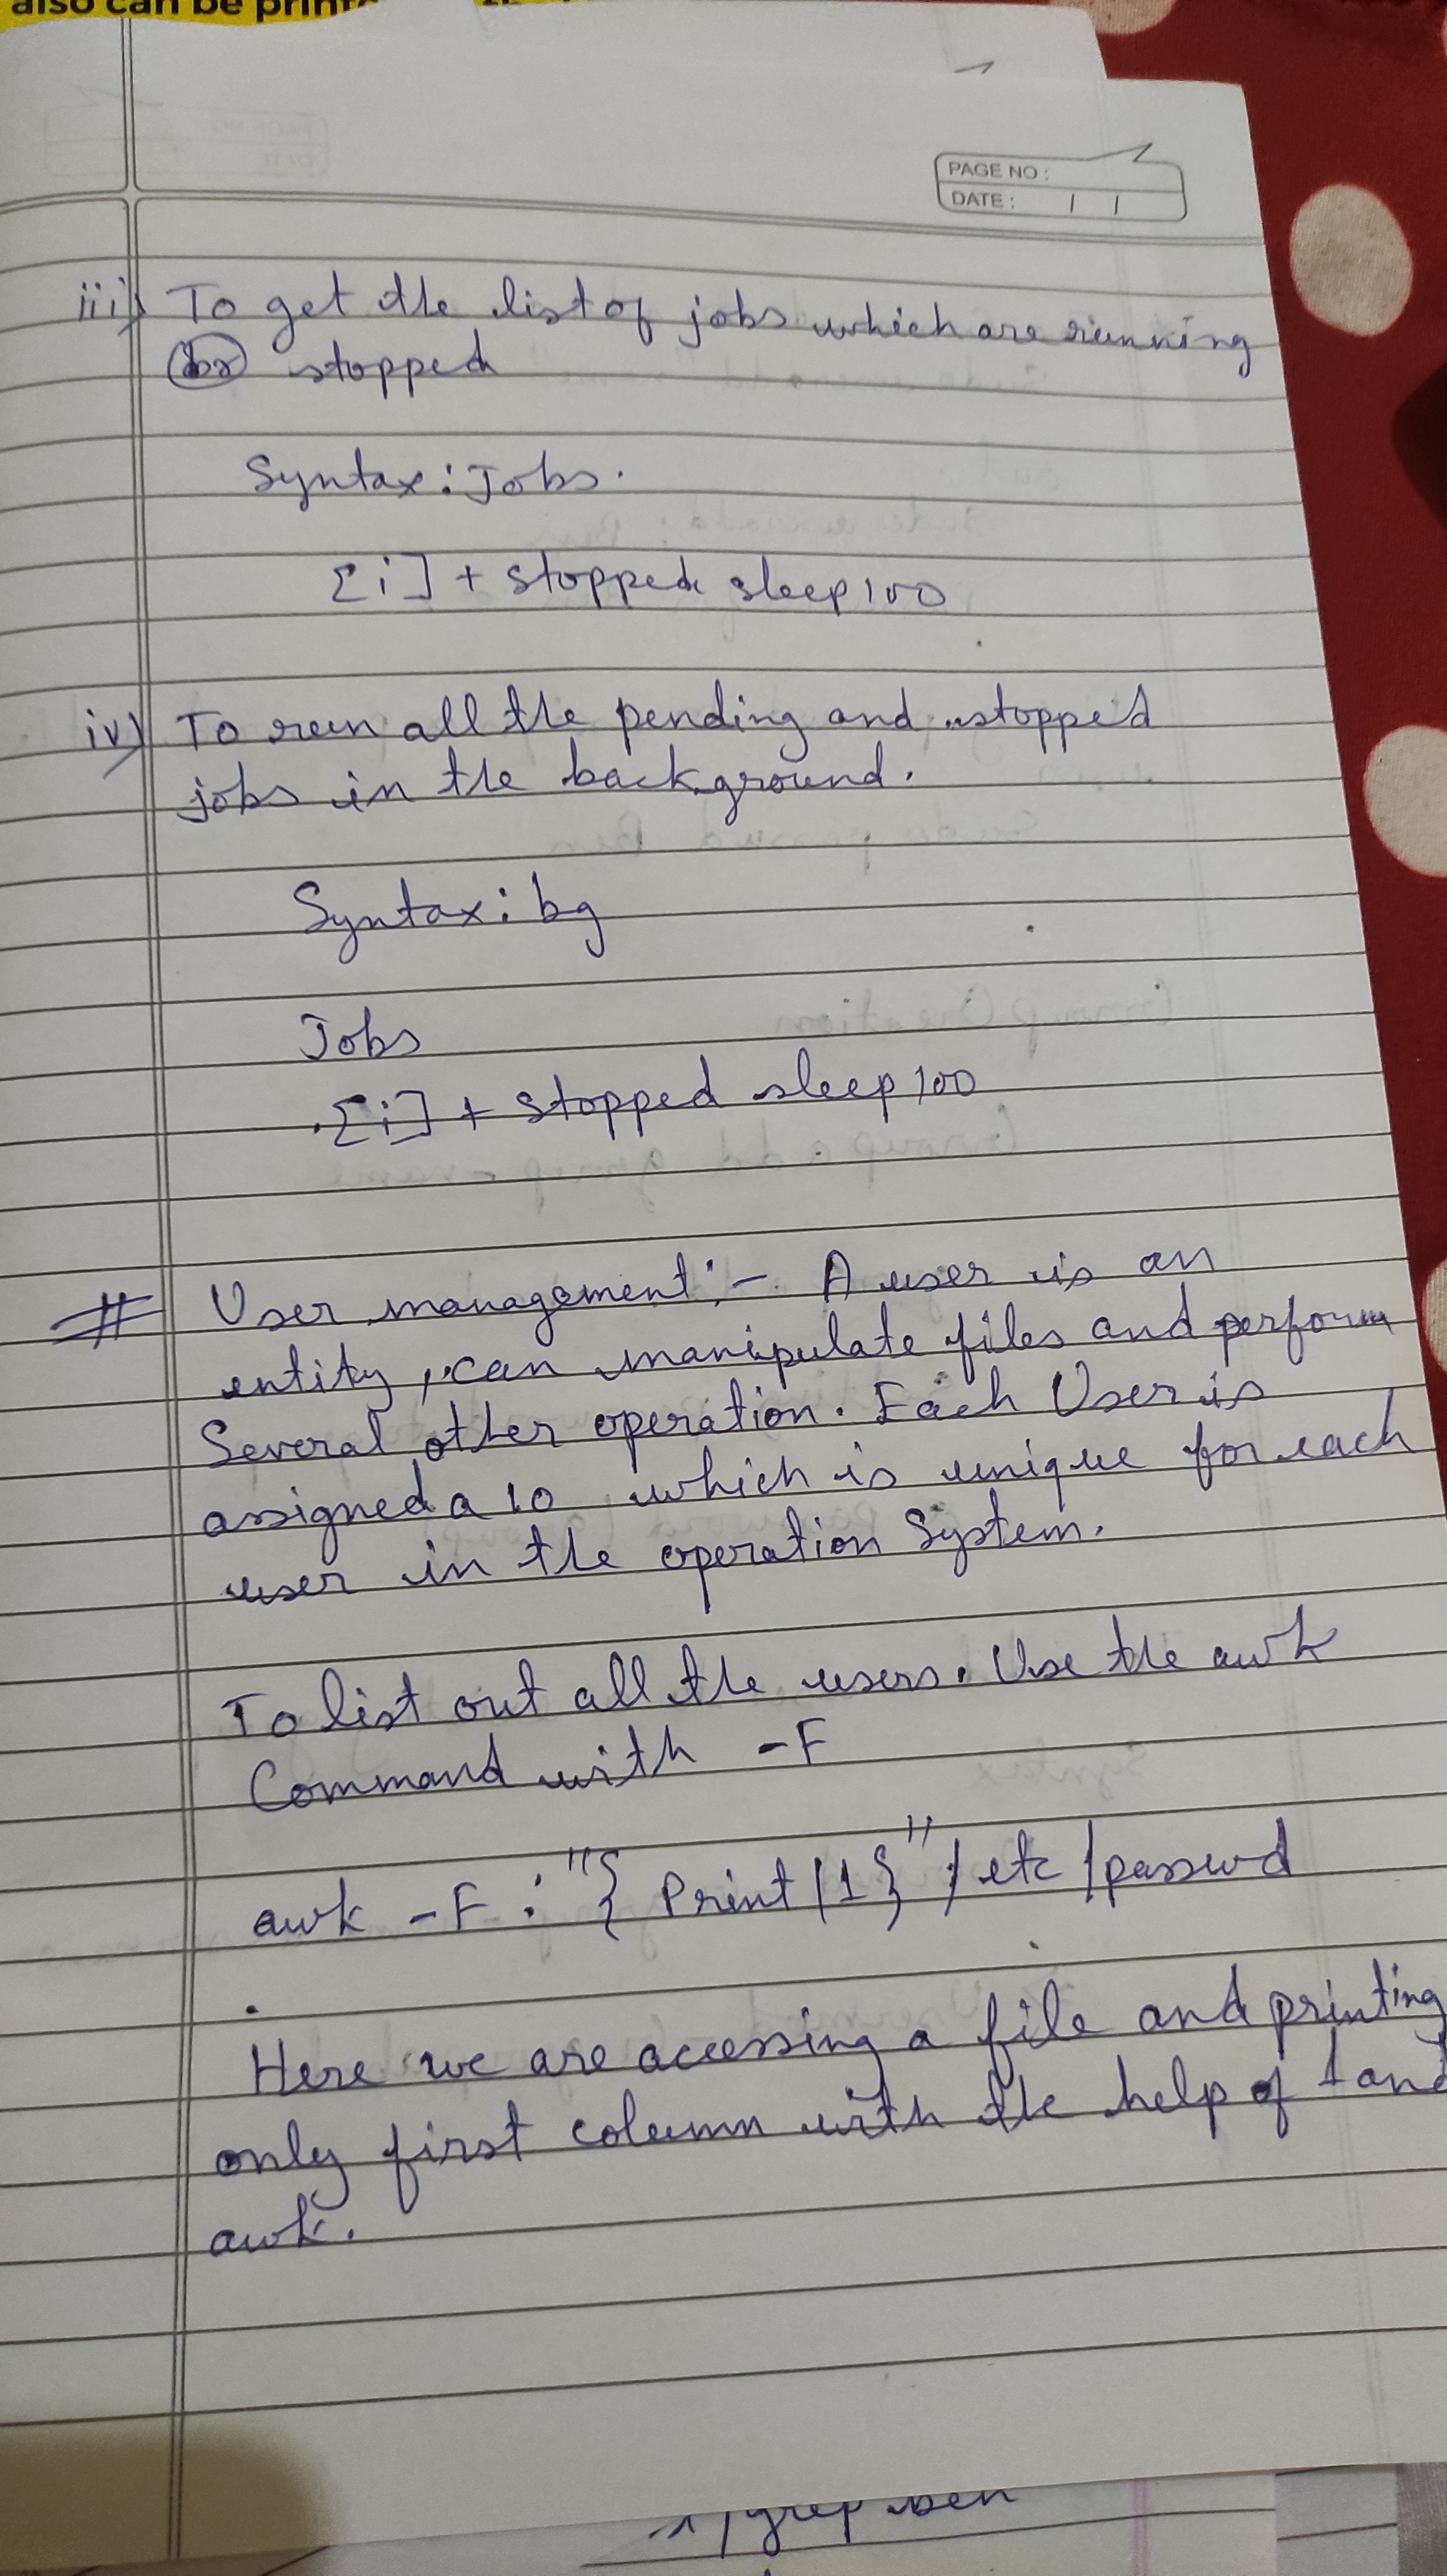 also can be
PAGE NO :
DATE : / /
iii) To get the list of jobs which are running
(or) stopped
Syntax: Jobs.
[i] + stopped sleep 100
iv) To run all the pending and stopped
jobs in the background.
Syntax: bg
Jobs
.[i] + stopped sleep 100
# User management :- A user is an
entity, can manipulate files and perform
Several other operation. Each User is
assigned a 10 which is unique for each
user in the operation System.
To list out all the users. Use the awk
Command with -F
awk -F : "{ Print /1}" /etc /passwd
Here we are accessing a file and printing
only first column with the help of 1 and
awk.
grep ben